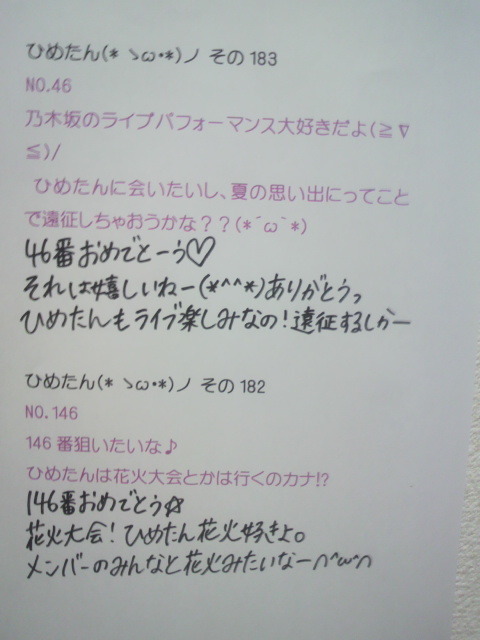 ひめたん(*ゝω・*)ノ その183
NO.46
乃木坂のライブパフォーマンス大好きだよ(≧∇
≦)/
ひめたんに会いたいし、夏の思い出にってこと
で遠征しちゃおうかな？？(*´ω`*)
46番おめでとーう♡
それは嬉しいねー(*^^*)ありがとうっ
ひめたんもライブ楽しみなの!遠征するしかー
ひめたん(*ゝω・*)ノ その182
NO.146
146番狙いたいな♪
ひめたんは花火大会とかは行くのカナ!?
146番おめでとう☆
花火大会!ひめたん花火好きよ。
メンバーのみんなと花火みたいなーの^ω^の